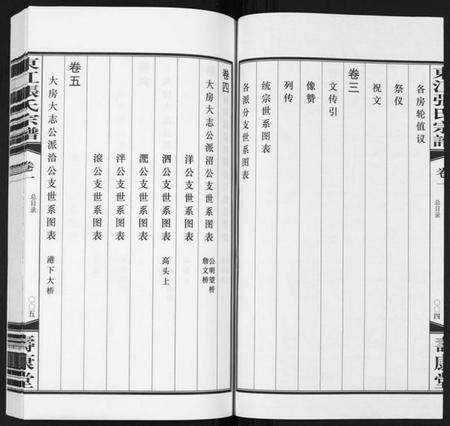 東江張氏宗譜
卷一
总目录
〇〇四
壽康堂
各房轮值议
祭仪
祝文
卷三
文传引
像赞
列传
统宗世系图表
各派分支世系图表
卷四
大房大志公派沼公支世系图表
公明望桥
詹文桥
洋公支世系图表
泗公支世系图表 高头上
淝公支世系图表
泮公支世系图表
滚公支世系图表
卷五
大房大志公派洽公支世系图表 港下大桥
東江張氏宗譜
卷一
总目录
〇〇五
壽康堂